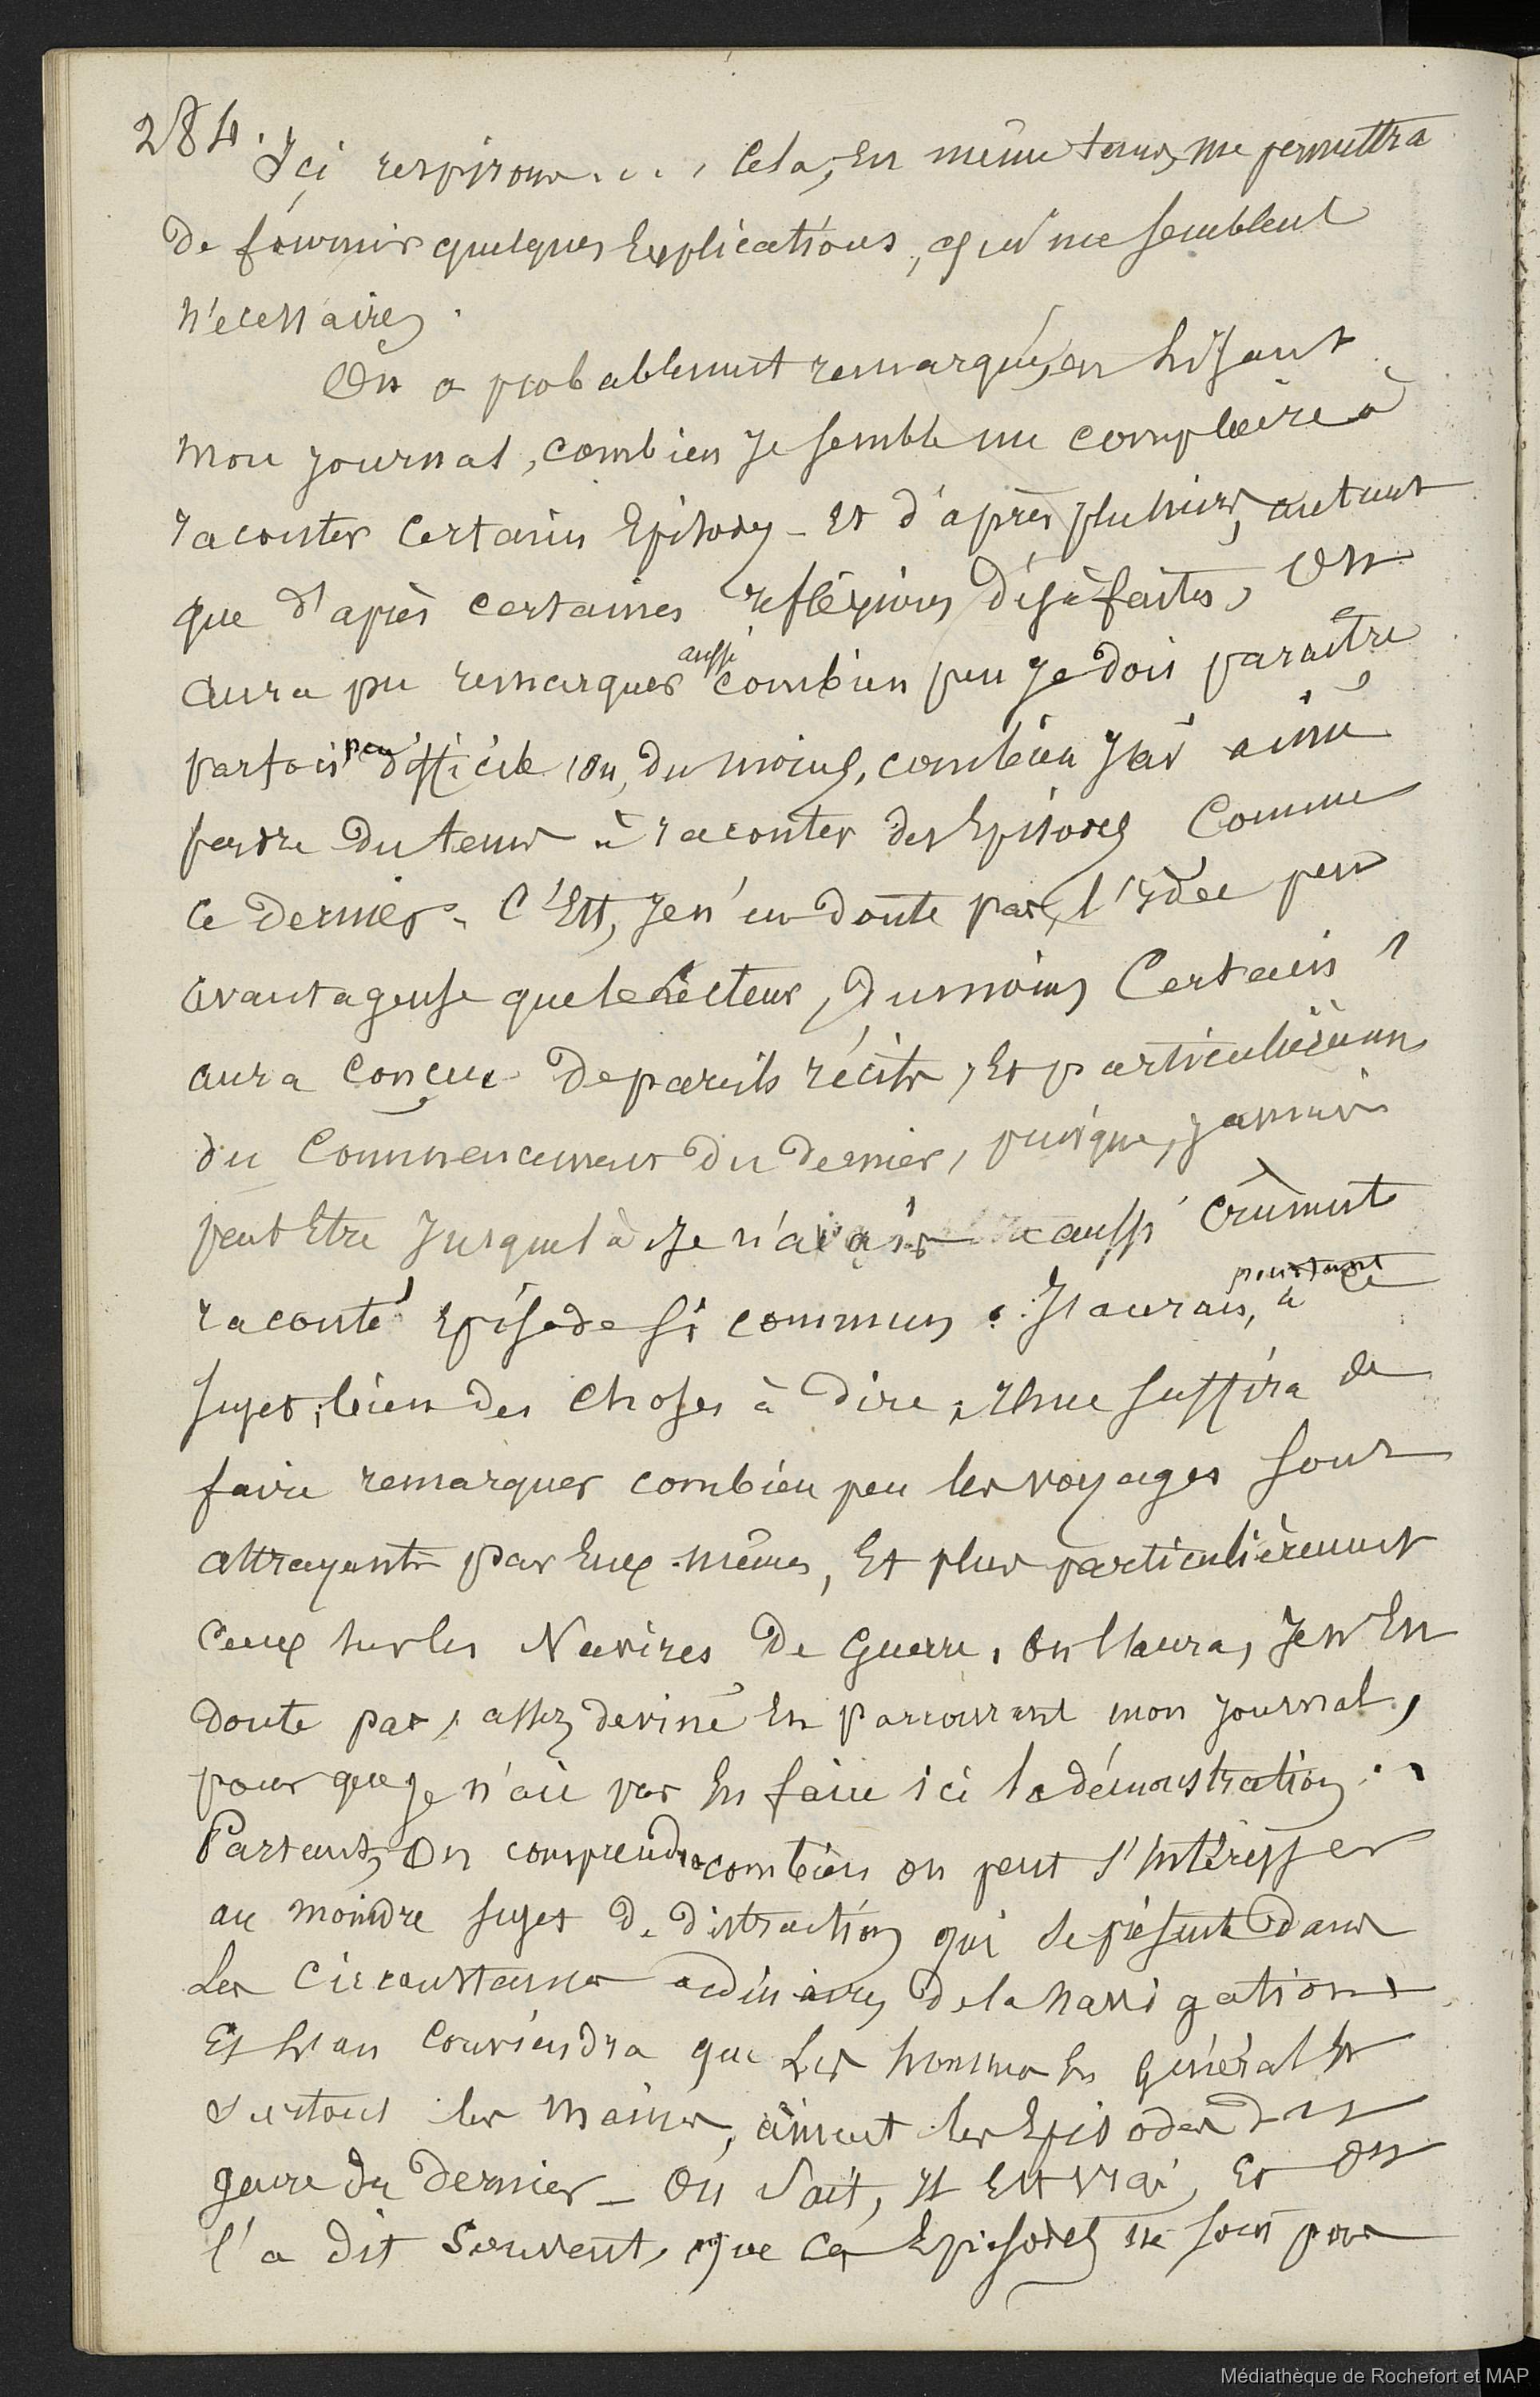 284.
Ici respirons.... Cela, en même tems, me permettra
de fournir quelques explications, qui me semblent
nécessaires.
On a probablement remarqué, en lisant
mon journal, combien je semble me complaire à
raconter certains Episodes - Et d'après plusieurs, autant
que d'après certaines réflexions déjà faites, on
aura pu remarquer aussi combien peu je dois paraître
parfois peu difficile, ou, du moins, combien j'ai aimé
perdre du tems à raconter des Episodes comme
ce dernier. C'Est, je n'en doute pas, l'idée peu
avantageuse que le Lecteur, du moins certain,
aura conçue de pareils récits, Et particulièremen
du commencement du dernier, puisque, jamais
peut Etre jusque là je n'avais aussi crûment
raconté Episode si commun. J'aurais, pourtant à ce
sujet, bien des choses à dire, il me suffira de
faire remarquer combien peu les voyages sont
attrayants par Eux-mêmes, Et plus particulièrement
ceux sur les Navires de guerre. On l'aura, je n'en
doute pas, assez deviné En parcourant mon journal,
pour que je n'aie pas En faire ici la démonstration..
Partant, on comprendra combien on peut s'intéresser
au moindre sujet de distraction qui se présente dans
les circonstances ordinaires de la navigation
Et l'on conviendra que les hommes En général Et
surtout les marins, aiment les Episodes du
genre du dernier - On sait, il Est vrai, Et on
l'a dit souvent, que ces Episodes ne sont pas
Médiathèque de Rochefort et MAP